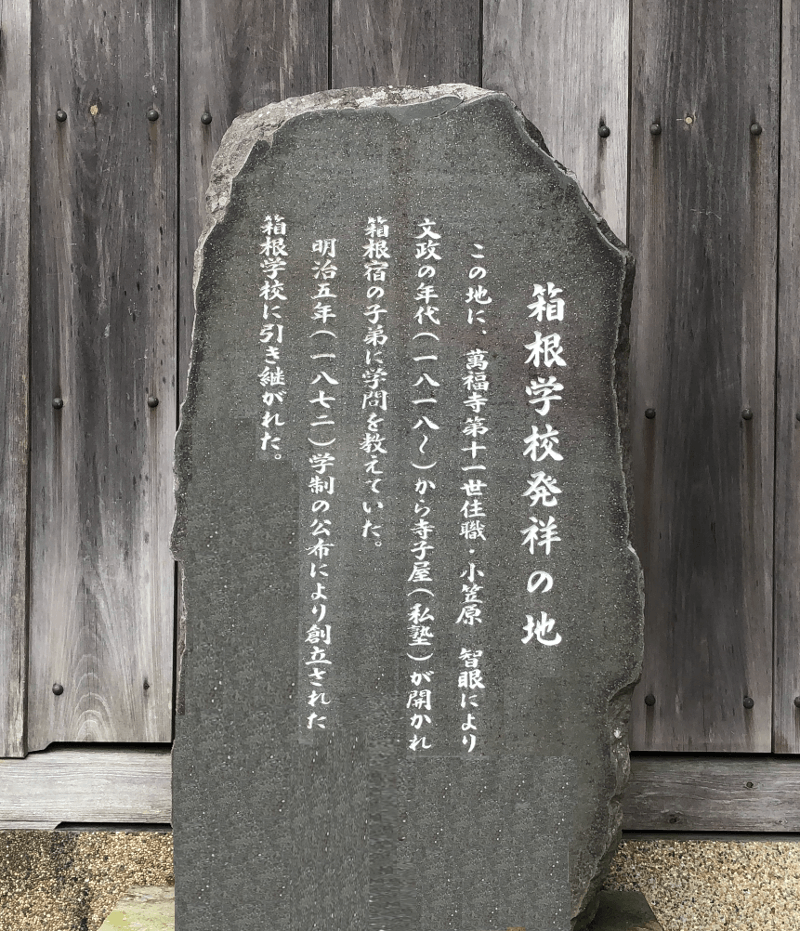 箱根学校発祥の地
この地に、萬福寺第十一世住職・小笠原　智眼により
文政の年代(一八一八〜)から寺子屋(私塾)が開かれ
箱根宿の子弟に学問を教えていた。
明治五年(一八七二)学制の公布により創立された
箱根学校に引き継がれた。